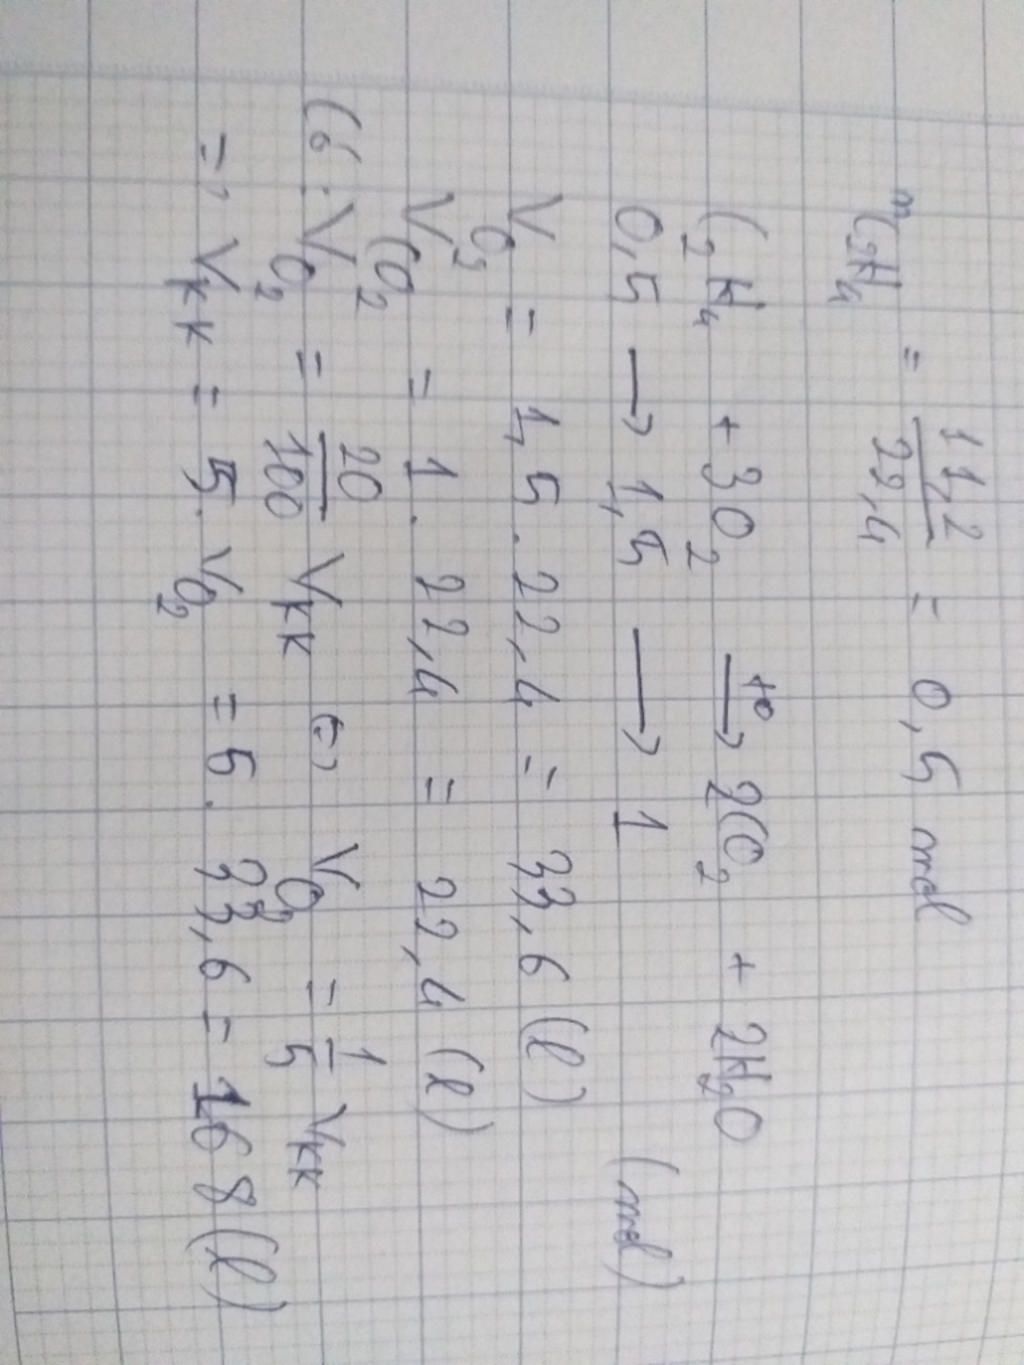 n C₂H₄ = 11,2/22,4 = 0,5 mol
C₂H₄ + 3O₂ →(t°) 2CO₂ + 2H₂O
0,5 → 1,5 → 1 (mol)
V O₂ = 1,5 . 22,4 = 33,6 (l)
V CO₂ = 1 . 22,4 = 22,4 (l)
Có : V O₂ = 20/100 V KK <=> V O₂ = 1/5 V KK
=> V KK = 5 . V O₂ = 5 . 33,6 = 168 (l)